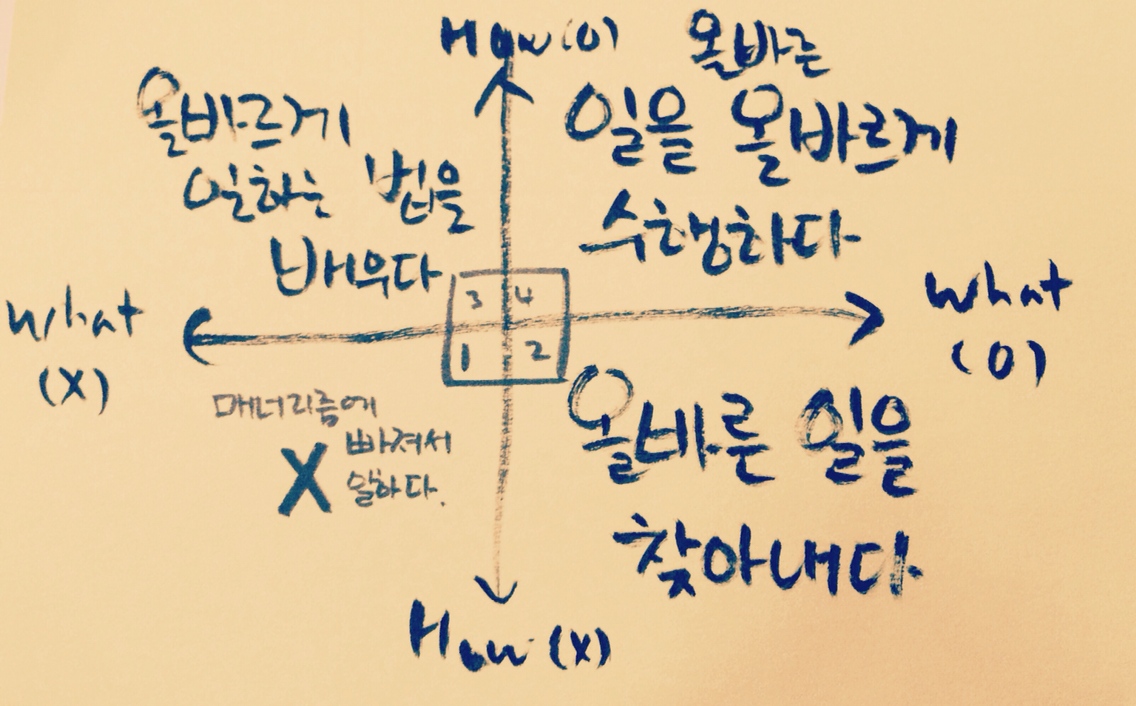 How (O)
올바르게
일하는 법을
배우다
올바른
일을 올바르게
수행하다
What
(X)
3 4
1 2
What
(O)
매너리즘에
X 빠져서
일하다.
올바른 일을
찾아내다
How (X)